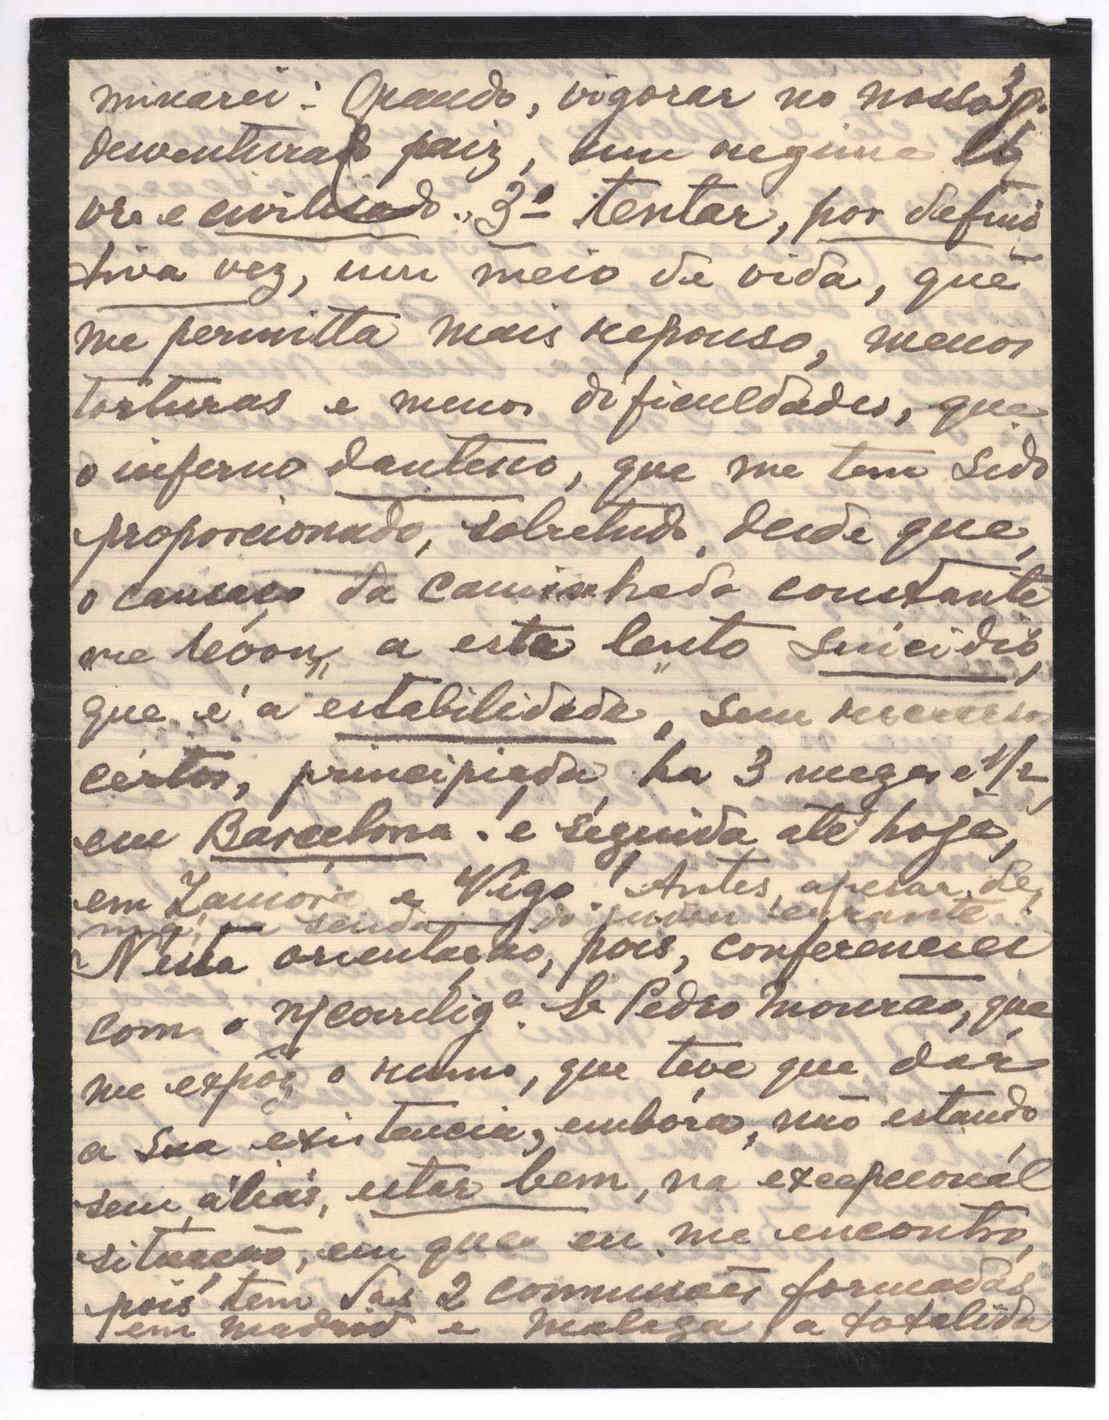 minarei: Quando, vigorar no nosso 3p.
desventurado paiz, um regime li
vre e civilisado. 3º tentar, por defini
tiva vez, um meio de vida, que
me permitta mais repouso, menos
torturas e menos dificuldades, que
o inferno dantesco, que me tem sido
proporcionado, sobretudo, desde que,
o cansaço da caminhada constante
me a este lento suicidio,
que é a estabilidade, sem recursos
certos, principiada ha 3 mezes e 1/2,
em Barcelona. e seguida até hoje,
em Zamóra e Vigo. Antes, apesar de,
senda do errante
Nesta orientação, pois, conferenciei
com o n/ corrligº. Sr Pedro Mourão, que
me expôz o rumo, que teve que dar
a sua existencia, embóra, não estando
sem, aliás, estar bem, na excepcional
situação, em que eu me encontro,
pois tem das 2 commissões formadas
em Madrid e Malaga a totalida